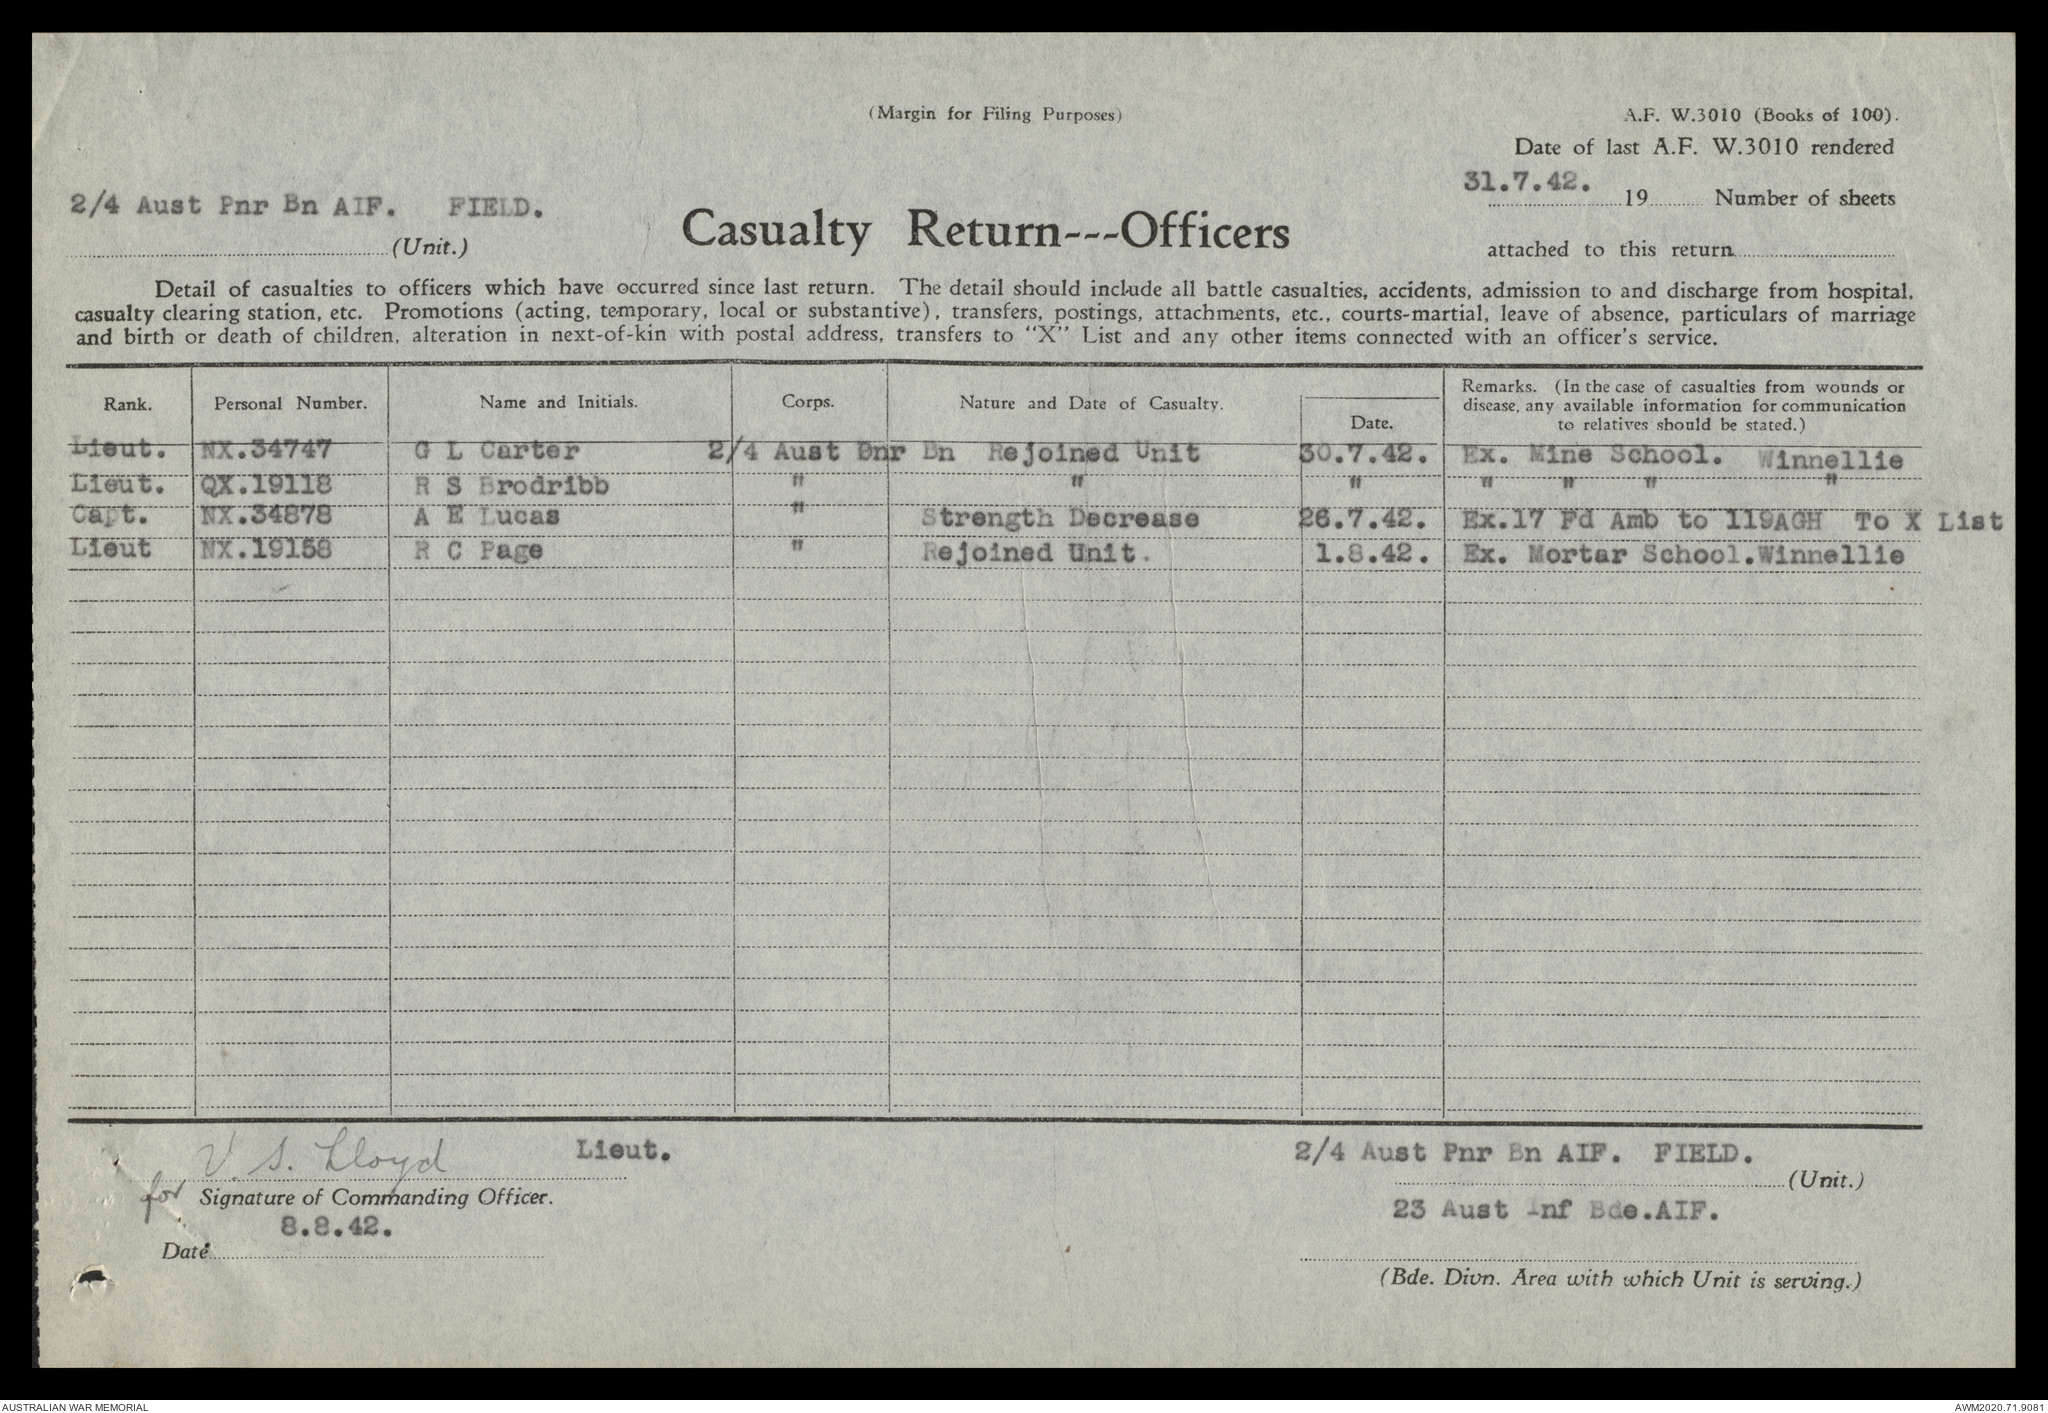 (Margin for Filing Purposes)
A.F. W.3010 (Books of 100).
Date of last A.F. W.3010 rendered
31.7.42. 19 Number of sheets
attached to this return
2/4 Aust Pnr Bn AIF. FIELD.
(Unit.)
Casualty Return---Officers
Detail of casualties to officers which have occurred since last return. The detail should include all battle casualties, accidents, admission to and discharge from hospital,
casualty clearing station, etc. Promotions (acting, temporary, local or substantive), transfers, postings, attachments, etc., courts-martial, leave of absence, particulars of marriage
and birth or death of children, alteration in next-of-kin with postal address, transfers to "X" List and any other items connected with an officer's service.
Rank. Personal Number. Name and Initials. Corps. Nature and Date of Casualty. Date. Remarks. (In the case of casualties from wounds or
disease, any available information for communication
to relatives should be stated.)
Lieut. NX.34747 G L Carter 2/4 Aust Pnr Bn Rejoined Unit 30.7.42. Ex. Mine School. Winnellie
Lieut. QX.19118 R S Brodribb " " " " " " "
Capt. NX.34878 A E Lucas " Strength Decrease 26.7.42. Ex.17 Fd Amb to 119AGH To X List
Lieut NX.19158 R C Page " Rejoined Unit. 1.8.42. Ex. Mortar School.Winnellie
V. S. Lloyd Lieut.
for Signature of Commanding Officer.
8.8.42.
Date
2/4 Aust Pnr Bn AIF. FIELD.
(Unit.)
23 Aust Inf Bde.AIF.
(Bde. Divn. Area with which Unit is serving.)
AUSTRALIAN WAR MEMORIAL
AWM2020.71.9081